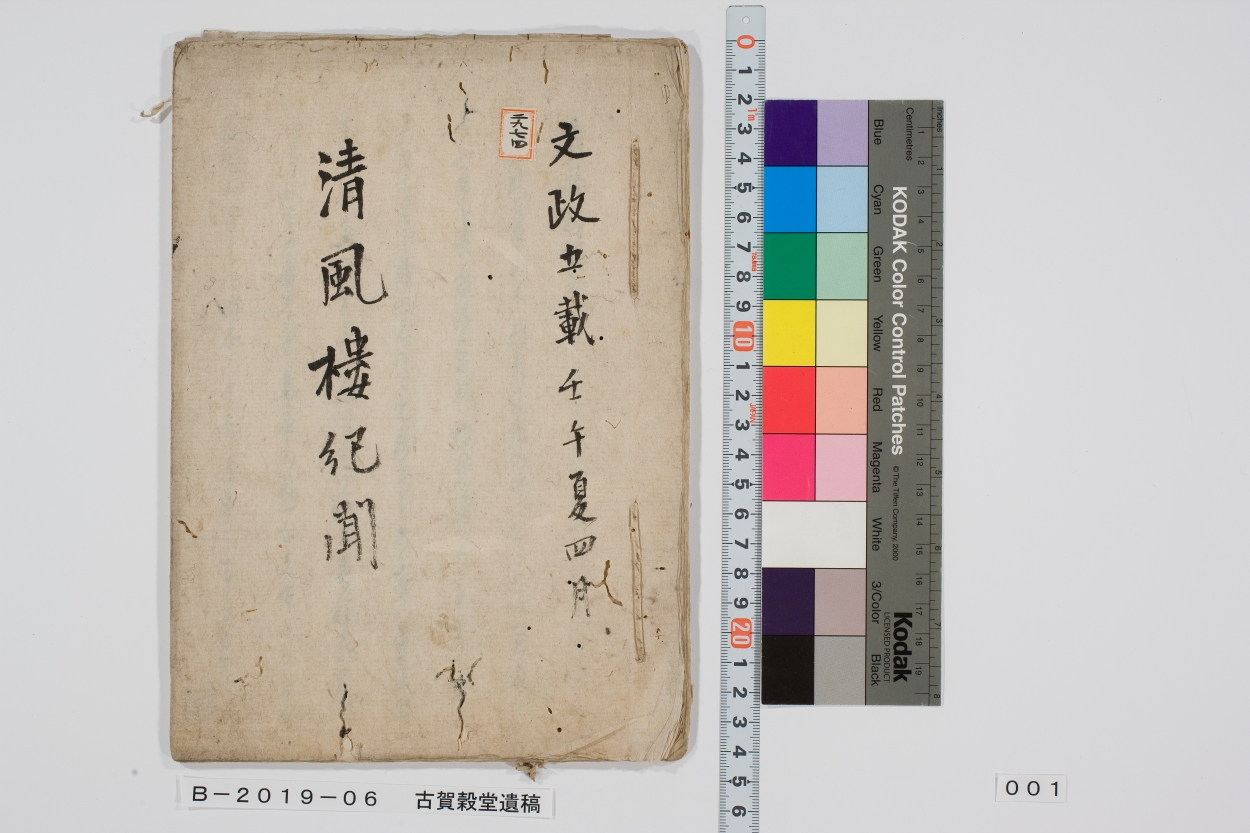 文政五載壬午夏四月
二九七四
清風樓紀聞
B-2019-06 古賀穀堂遺稿
001
0 1 2 3 4 5 6 7 8 9 10 1 2 3 4 5 6 7 8 9 20 1 2 3 4 5 6
1m
JAPAN
Inches
Centimetres
1 2 3 4 5 6 7 8
1 2 3 4 5 6 7 8 9 10 11 12 13 14 15 16 17 18 19
KODAK Color Control Patches
© The Tiffen Company, 2000
Kodak
LICENSED PRODUCT
Blue
Cyan
Green
Yellow
Red
Magenta
White
3/Color
Black